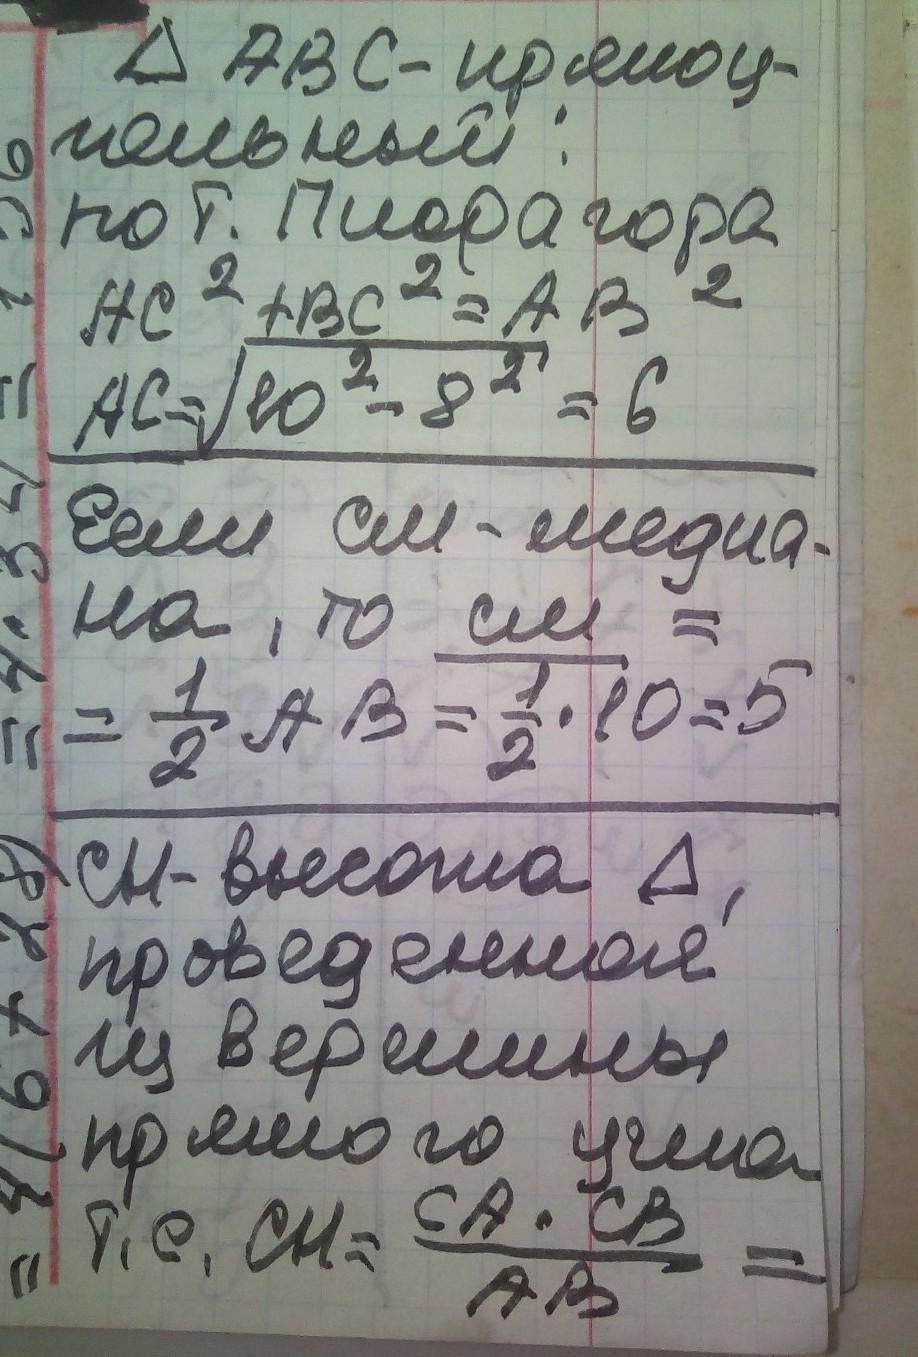 Δ ABC - прямоу-
гольный:
по т. Пифагора
AC² + BC² = AB²
AC = √10² - 8² = 6
Если CM - медиа-
на, то CM =
= 1/2 AB = 1/2 · 10 = 5
CH - высота Δ,
проведенной
из вершины
прямого угла
т.е. CH = CA · CB / AB =